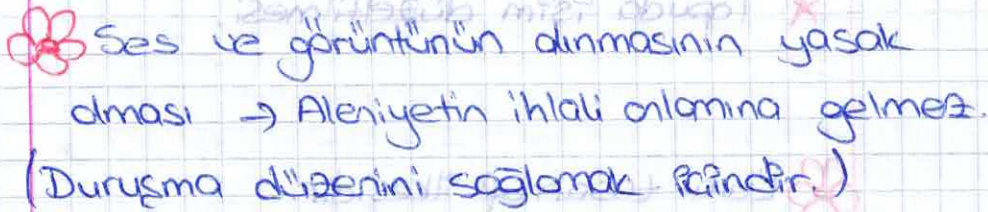 Ses ve görüntünün alınmasının yasak
olması → Aleniyetin ihlali anlamına gelmez.
(Duruşma düzenini sağlamak içindir.)